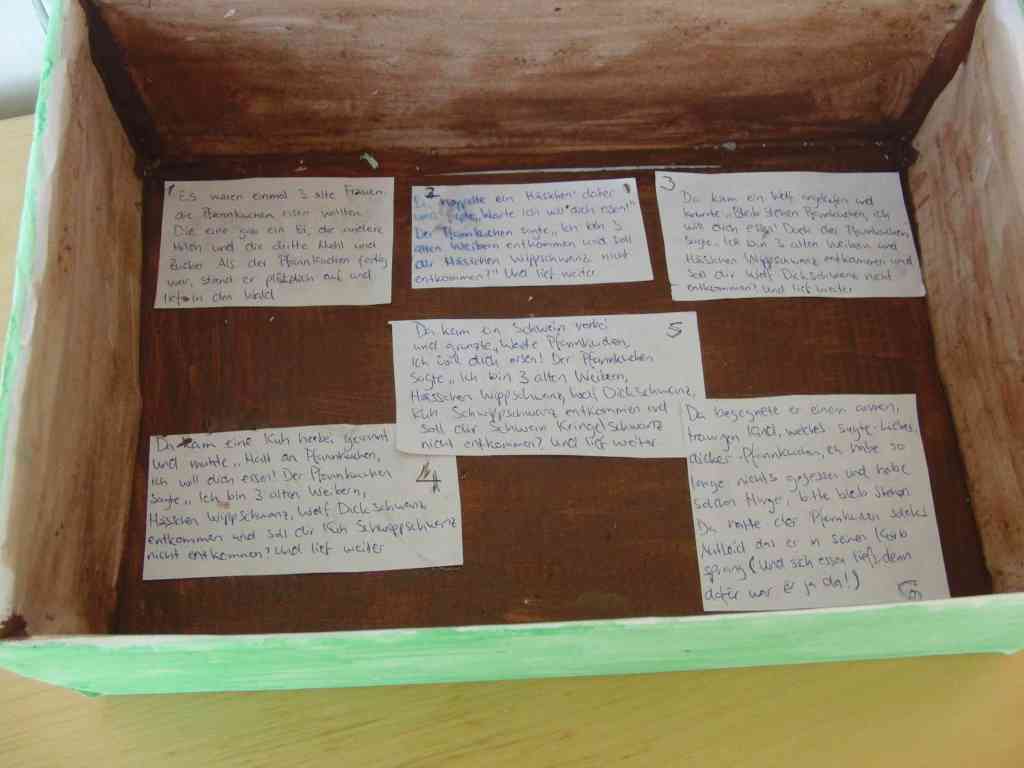 1
Es waren einmal 3 alte Frauen
die Pfannkuchen essen wollten.
Die eine gab ein Ei, die andere
Milch und die dritte Mehl und
Zucker. Als der Pfannkuchen fertig
war, stand er plötzlich auf und
lief in den Wald
2
Da hoppelte ein Häschen daher
und "Warte ich will dich essen!"
Der Pfannkuchen sagte "Ich bin 3
alten Weibern entkommen und soll
dir Häschen Wippschwanz nicht
entkommen?" Und lief weiter
3
Da kam ein Wolf angelaufen und
"Bleib stehen Pfannkuchen, ich
will dich essen! Doch der Pfannkuchen
sagte "Ich bin 3 alten Weibern und
Häschen Wippschwanz entkommen und
soll dir Wolf Dickschwanz nicht
entkommen? Und lief weiter
4
Da kam eine Kuh herbei gerannt
und muhte "Halt an Pfannkuchen,
ich will dich essen! Der Pfannkuchen
sagte "Ich bin 3 alten Weibern,
Häschen Wippschwanz, Wolf Dickschwanz
entkommen und soll dir Kuh Schwippschwanz
nicht entkommen? Und lief weiter
5
Da kam ein Schwein vorbei
und grunzte "Warte Pfannkuchen,
Ich will dich essen! Der Pfannkuchen
sagte "Ich bin 3 alten Weibern,
Häschen Wippschwanz, Wolf Dickschwanz,
Kuh Schwippschwanz entkommen und
soll dir Schwein Kringelschwanz
nicht entkommen? Und lief weiter
Da begegnete er einem armen,
traurigen Kind, welches sagte "Liebes,
dicker Pfannkuchen, ich habe so
lange nichts gegessen und habe
solchen Hunger, bitte bleib stehen
Da hatte der Pfannkuchen solches
Mitleid das er in seinen Korb
sprang (Und sich essen ließ, denn
dafür war er ja da!)
6